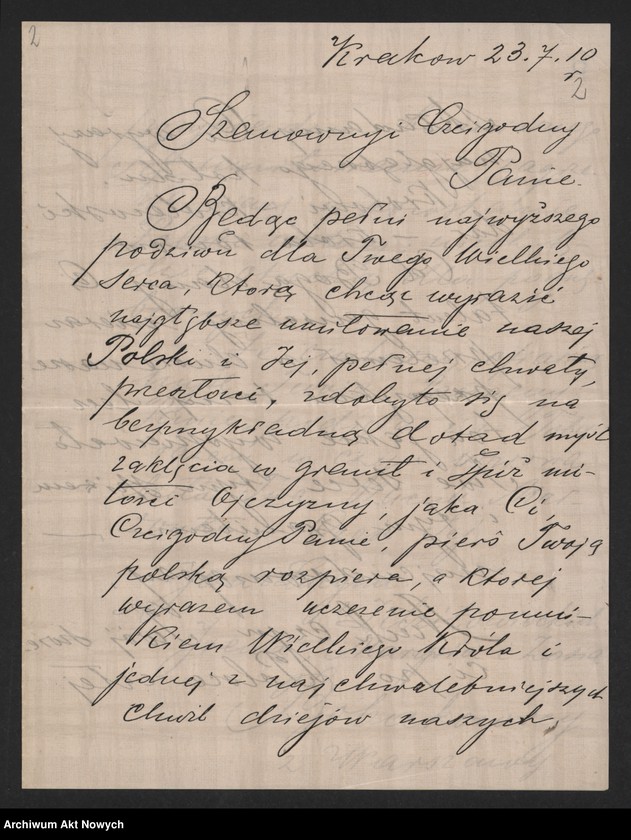 2
Krakow 23.7.10
r
2
Szanownyi Czcigodny
Panie.
Będąc pełni najwyższego
podziwu dla Twego Wielkiego
Serca, które chcąc wyrazić
najgłębsze umiłowanie naszej
Polski i Jej, pełnej chwały,
przeszłości, zdobyło się na
bezprzykładną dotąd myśl
zaklęcia w granit i śpiż mi-
łości Ojczyzny, jaka Ci,
Czcigodny Panie, pierś Twoją
polską rozpiera, a której
wyrazem uczczenie pomni-
kiem Wielkiego Króla i
jednej z najchwalebniejszych
chwil dziejów naszych,
Archiwum Akt Nowych